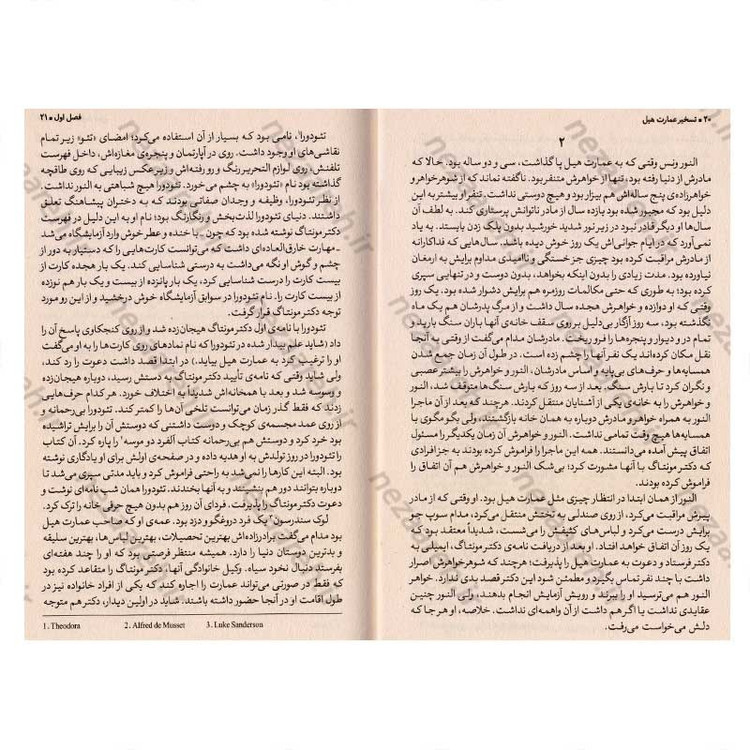 ۲۰ * تسخیر عمارت هیل
۲
النور ونس وقتی که به عمارت هیل پا گذاشت، سی و دو ساله بود. حالا که
مادرش از دنیا رفته بود، تنها از خواهرش متنفر بود. ناگفته نماند که از شوهرخواهر و
خواهرزاده‌ی پنج ساله‌اش هم بیزار بود و هیچ دوستی نداشت. تنفر او بیشتر به این
دلیل بود که مجبور شده بود یازده سال از مادر ناتوانش پرستاری کند. به لطف آن
سال‌ها او دیگر قادر نبود در زیر نور شدید خورشید بدون پلک زدن بایستد. به یاد
نمی‌آورد که در ایام جوانی‌اش یک روز خوش دیده باشد. سال‌هایی که فداکارانه
از مادرش مراقبت کرده بود چیزی جز خستگی و ناامیدی مداوم برایش به ارمغان
نیاورده بود. مدت زیادی را بدون اینکه بخواهد، بدون دوست و در تنهایی سپری
کرده بود؛ به طوری که حتی مکالمات روزمره هم برایش دشوار شده بود. یک روز
وقتی که او دوازده و خواهرش هجده سال داشت و از مرگ پدرشان هم یک ماه
نگذشته بود، سه روز آزگار بی‌دلیل بر روی سقف خانه‌ی آنها باران سنگ بارید و
تمام در و دیوار و پنجره‌ها را فرو ریخت. مادرشان مدام می‌گفت از وقتی به آنجا
نقل مکان کرده‌اند یک نفر آنها را چشم زده است. در طول آن زمان جمع شدن
همسایه‌ها و حرف‌های بی‌پایه و اساس مادرشان، النور و خواهرش را بیشتر عصبی
و نگران کرد تا بارش سنگ. بعد از سه روز که بارش سنگ‌ها متوقف شد، النور
و خواهرش را به خانه‌ی یکی از آشنایان منتقل کردند. هرچند که بعد از آن
النور به همراه خواهر و مادرش دوباره به همان خانه بازگشتند، ولی بگومگوی با
همسایه‌ها هیچ وقت تمامی نداشت. النور و خواهرش آن زمان یکدیگر را مسئول
اتفاق پیش آمده می‌دانستند. همه این ماجرا را فراموش کرده بودند به جز افرادی
که دکتر مونتاگ با آنها مشورت کرد؛ بی‌شک النور و خواهرش هم آن اتفاق را
فراموش کرده بودند.
النور از همان ابتدا در انتظار چیزی مثل عمارت هیل بود. او وقتی که از مادر
پیرش مراقبت می‌کرد، از روی صندلی به تختش منتقل می‌کرد، مدام سوپ جو
برایش درست می‌کرد و لباس‌های کثیفش را می‌شست، شدیداً معتقد بود که
یک روز آن اتفاق خواهد افتاد. او بعد از دریافت نامه‌ی دکتر مونتاگ، ایمیلی به
دکتر فرستاد و دعوت به عمارت هیل را پذیرفت؛ هرچند که شوهرخواهرش اصرار
داشت با چند نفر تماس بگیرد و مطمئن شود این دکتر قصد بدی ندارد. خواهر
النور هم می‌ترسید او را ببرند و رویش آزمایش انجام بدهند، ولی النور چنین
عقایدی نداشت یا اگر هم داشت از آن واهمه‌ای نداشت. خلاصه، او هر جا که
دلش می‌خواست می‌رفت.
فصل اول * ۲۱
تئودورا¹، نامی بود که بسیار از آن استفاده می‌کرد؛ امضای «تئو» زیر تمام
نقاشی‌های او وجود داشت. روی در آپارتمان و پنجره‌ی مغازه‌اش، داخل فهرست
تلفنش، روی لوازم التحریر رنگ و رو رفته‌اش و زیر عکس زیبایی که روی طاقچه
گذاشته بود نام «تئودورا» به چشم می‌خورد. تئودورا هیچ شباهتی به النور نداشت.
از نظر تئودورا، وظیفه و وجدان صفاتی بودند که به دختران پیشاهنگ تعلق
داشتند. دنیای تئودورا لذت‌بخش و رنگارنگ بود؛ نام او به این دلیل در فهرست
دکتر مونتاگ نوشته شده بود که چون - با خنده و عطر خوش وارد آزمایشگاه می‌شد
- مهارت خارق‌العاده‌ای داشت که می‌توانست کارت‌هایی را که دستیار به دور از
چشم و گوش او نگه می‌داشت به درستی شناسایی کند. یک بار هجده کارت از
بیست کارت را درست شناسایی کرد، یک بار پانزده از بیست و یک بار هم نوزده
از بیست کارت را. نام تئودورا در سوابق آزمایشگاه خوش درخشید و از این رو مورد
توجه دکتر مونتاگ قرار گرفت.
تئودورا با نامه‌ی اول دکتر مونتاگ هیجان‌زده شد و از روی کنجکاوی پاسخ آن را
داد (شاید علم بیدار شده در تئودورا که نام نمادهای روی کارت‌ها را به او می‌گفت
او را ترغیب کرد به عمارت هیل بیاید.) در ابتدا قصد داشت دعوت را رد کند،
ولی شاید وقتی که نامه‌ی تأیید دکتر مونتاگ به دستش رسید، دوباره هیجان‌زده
و وسوسه شد و بعد با همخانه‌اش شدیداً به اختلاف خورد. هر کدام حرف‌هایی
زدند که فقط گذر زمان می‌توانست تلخی آن‌ها را کمتر کند. تئودورا بی‌رحمانه و
از روی عمد مجسمه‌ی کوچک و دوست داشتنی که دوستش آن را برایش تراشیده
بود خرد کرد و دوستش هم بی‌رحمانه کتاب آلفرد دو موسه² را پاره کرد. آن کتاب
را تئودورا در روز تولدش به او هدیه داده و در صفحه‌ی اولش برای او یادگاری نوشته
بود. البته این کارها را نمی‌شد به راحتی فراموش کرد و باید مدتی سپری می‌شد تا
دوباره بتوانند دور هم بنشینند و به آنها بخندند. تئودورا همان شب نامه‌ای نوشت و
دعوت دکتر مونتاگ را پذیرفت. فردای آن روز هم بدون هیچ حرفی خانه را ترک کرد.
لوک سندرسون³ یک فرد دروغگو و دزد بود. عمه‌ی او که صاحب عمارت هیل
بود مدام می‌گفت برادرزاده‌اش بهترین تحصیلات، بهترین لباس‌ها، بهترین سلیقه
و بدترین دوستان دنیا را دارد. همیشه منتظر فرصتی بود که او را چند هفته‌ای
بفرستد دنبال نخود سیاه. وکیل خانوادگی آنها، دکتر مونتاگ را متقاعد کرده بود
که فقط در صورتی می‌تواند عمارت را اجاره کند که یکی از افراد خانواده نیز در
طول اقامت او در آنجا حضور داشته باشند. شاید در اولین دیدار، دکتر هم متوجه
1. Theodora 2. Alfred de Musset 3. Luke Sanderson